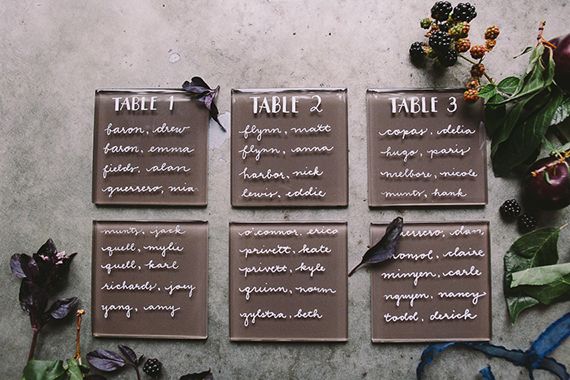 TABLE 1
baron, drew
baron, emma
fields, alan
guerrero, mia
munts, jack
quell, mylie
quell, karl
richards, joey
yang, amy
TABLE 2
flynn, matt
flynn, anna
harbor, nick
lewis, eddie
o'connor, erico
privett, kate
privett, kyle
quinn, norm
zylstra, beth
TABLE 3
copas, delia
hugo, paris
melbore, nicole
munts, hank
dan,
claire
minyen, carle
nguyen, nancy
todd, derick